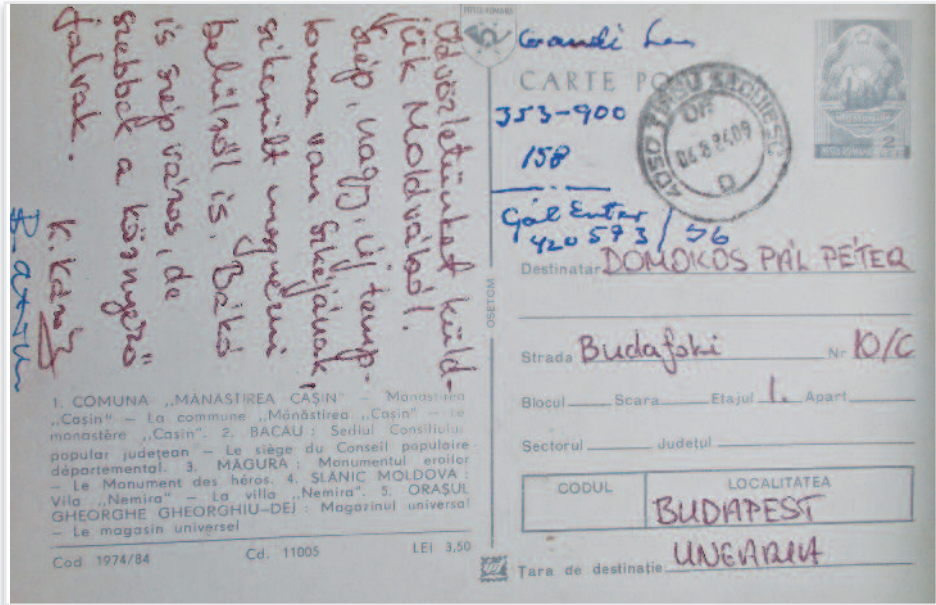 Üdvözletünket küld-
jük Moldvából.
Szép, nagy, új temp-
loma van Skéjának,
sikerült megnézni
belülről is. Bákó
is szép város, de
szebbek a környező
falvak.
K. Kán
1. COMUNA „MÂNĂSTIREA CAŞIN” – Mânăstirea
„Caşin” – La commune „Mânăstirea „Caşin” – Le
monastère „Caşin”. 2. BACĂU : Sediul Consiliului
popular judeţean – Le siège du Conseil populaire
départemental. 3. MĂGURA : Monumentul eroilor
– Le Monument des héros. 4. SLĂNIC MOLDOVA :
Vila „Nemira” – La villa „Nemira”. 5. ORAŞUL
GHEORGHE GHEORGHIU-DEJ : Magazinul universal
– Le magasin universel
Cod 1974/84 Cd. 11005 LEI 3,50
OSETCM
POSTA ROMÂNĂ
CARTE PO
353-900
158
Gál
420 573 / 56
2
Destinatar DOMOKOS PÁL PÉTER
Strada Budafoki Nr 10/C
Blocul Scara Etajul 1. Apart.
Sectorul Judeţul
CODUL LOCALITATEA
BUDAPEST
Ţara de destinaţie UNGARIA